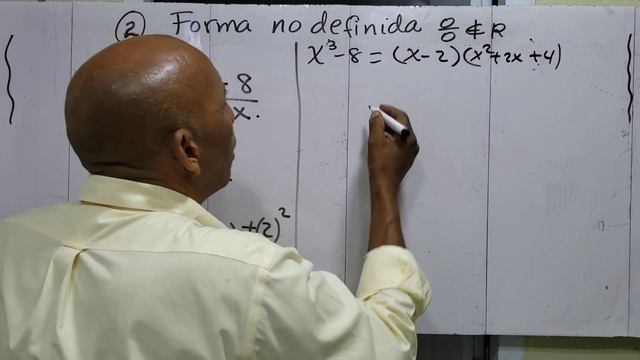 ② Forma no definida 0/0 ∉ R
x³-8 = (x-2)(x²+2x+4)
-8
x.
+(2)²